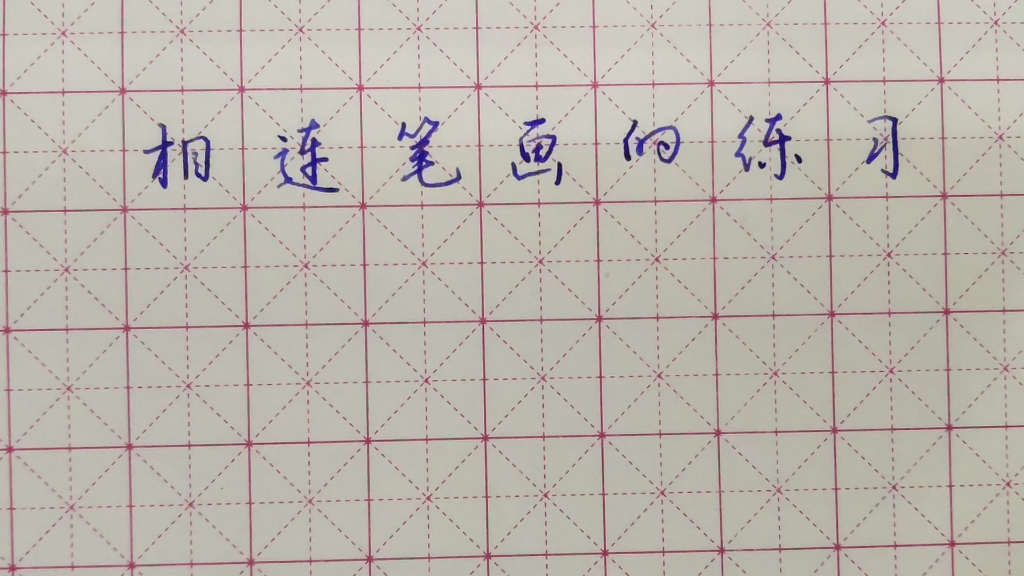 相连笔画的练习